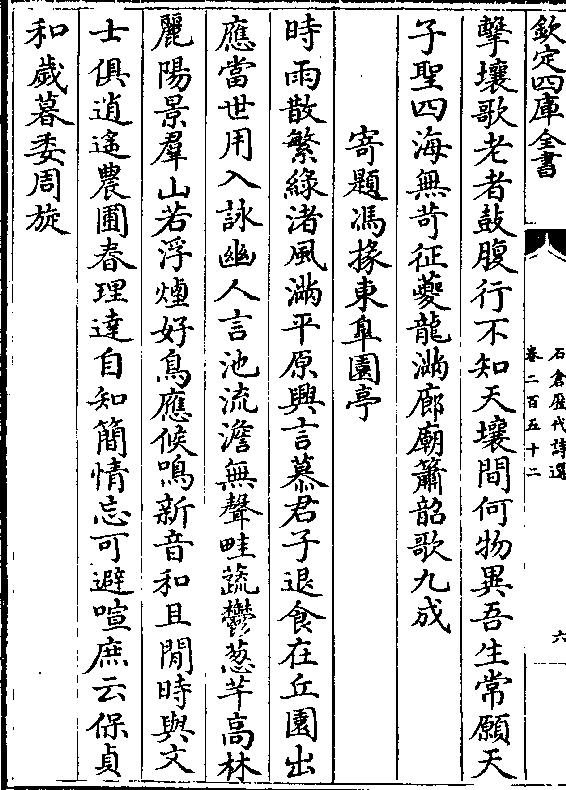 欽定四庫全書
石倉歷代詩選
卷二百五十二
六
擊壤歌老者鼓腹行不知天壤間何物異吾生常願天
子聖四海無苛征夔龍滿廊廟簫韶歌九成
寄題馮掾東皐園亭
時雨散繁綠渚風滿平原興言慕君子退食在丘園出
應當世用入詠幽人言池流澹無聲畦蔬鬱葱芊高林
麗陽景羣山若浮煙好鳥應候鳴新音和且閒時與文
士俱逍遙農圃春理達自知簡情忘可避喧庶云保貞
和歲暮委周旋